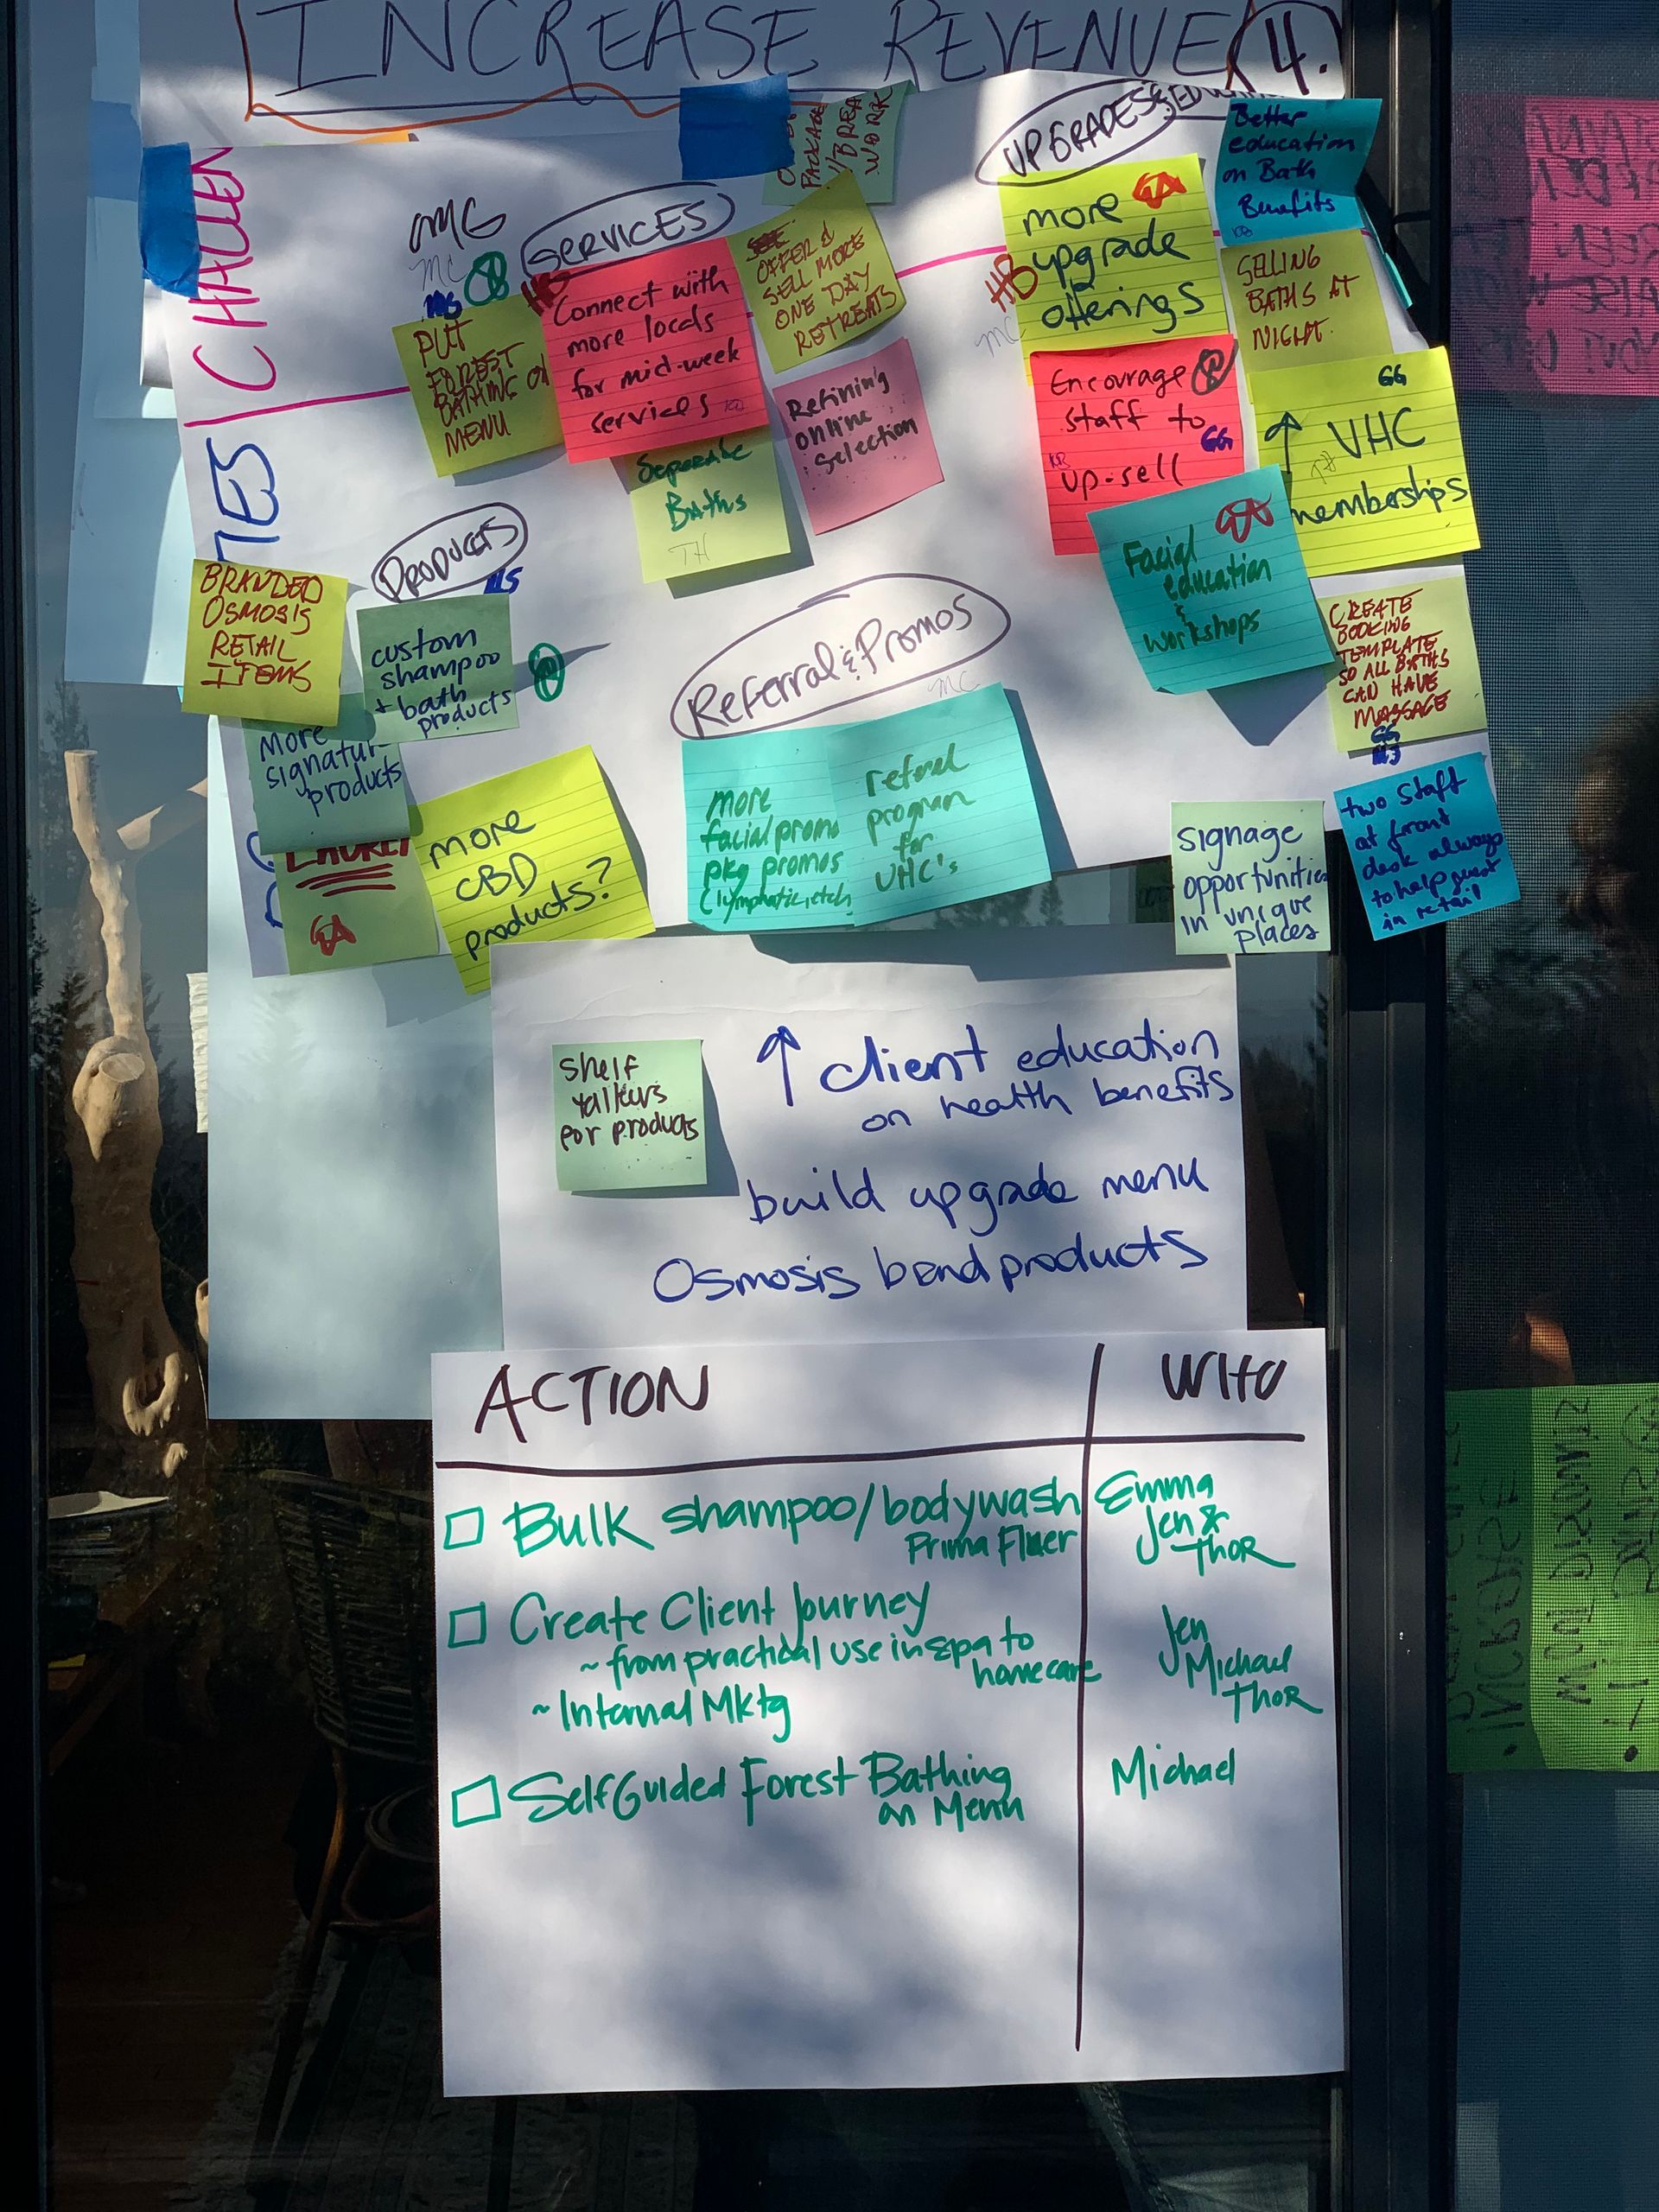 INCREASE REVENUE 4.
CHALLEN
UPGRADES &
Better
education
on Bath
Benefits
KB
PACKAGE
W/BREA
WORK
OMG
MC
MS
SERVICES
HB
PUT
FOREST
BATHING ON
MENU
Connect with
more locals
for mid-week
services KB
OFFER &
SELL MORE
ONE DAY
RETREATS
Refining
online
selection
Separate
Baths
TH
GA
more
upgrade
offerings
HB
MC
SELLING
BATHS AT
NIGHT.
Encourage
staff to
GG
KB
up-sell
GG
↑ VHC
TH
memberships
GA
Facial
education
&
workshops
CREATE
BOOKING
TEMPLATE
SO ALL BATHS
CAN HAVE
MASSAGE
GG
MS
two staff
at front
desk always
to help guest
in retail
signage
opportunities
in unique
places
PRODUCTS
MS
BRANDED
OSMOSIS
RETAIL
ITEMS
custom
shampoo
+ bath
products
More
signature
products
GA
more
CBD
products?
Referral & Promos
MC
more
facial promo
pkg promos
(lymphatic, etc)
referal
program
for
VHC's
shelf
talkers
for products
↑ client education
on health benefits
build upgrade menu
Osmosis brand products
ACTION WHO
Bulk shampoo/bodywash Emma
Prima Fluer Jen &
Thor
Create Client Journey Jen
~ from practical use in spa to Michael
home care Thor
~ Internal Mktg
Self Guided Forest Bathing Michael
on Menu